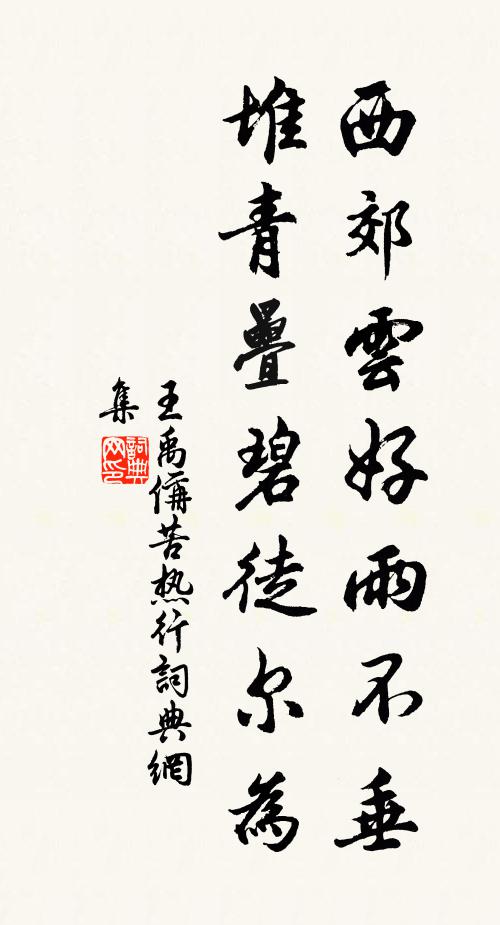 西郊雲好雨不垂
堆青疊碧徒尔為
王禹偁苦热行詞典網
集
詞典網印